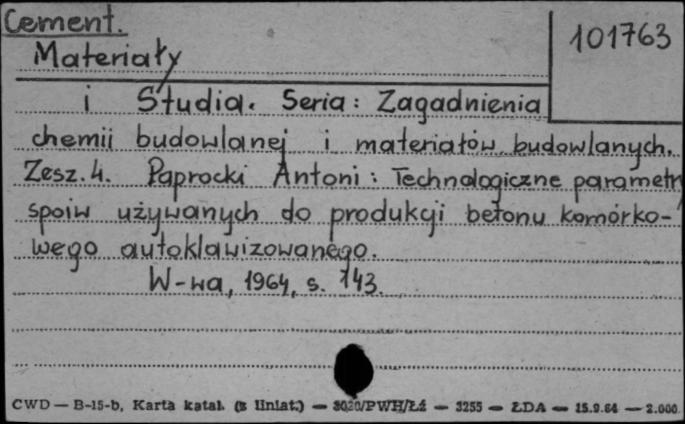 Cement.
101763
Materiały
i Studia. Seria: Zagadnienia
chemii budowlanej i materiałów budowlanych.
Zesz. 4. Paprocki Antoni: Technologiczne parametry
spoiw używanych do produkcji betonu komórko-
wego autoklawizowanego.
W-wa, 1964, s. 143.
CWD — B-15-b, Karta katal. (z liniat.) — 3020/PWH/Łź — 3255 — ŁDA — 15.9.64 — 2.000